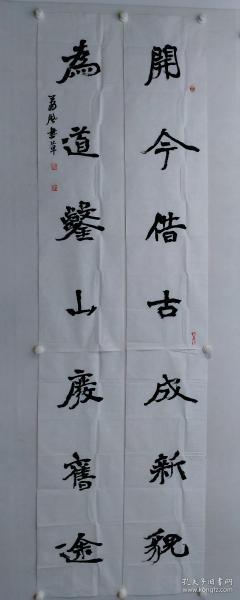 開今借古成新貌
為道鑿山廢舊途
孔夫子旧书网